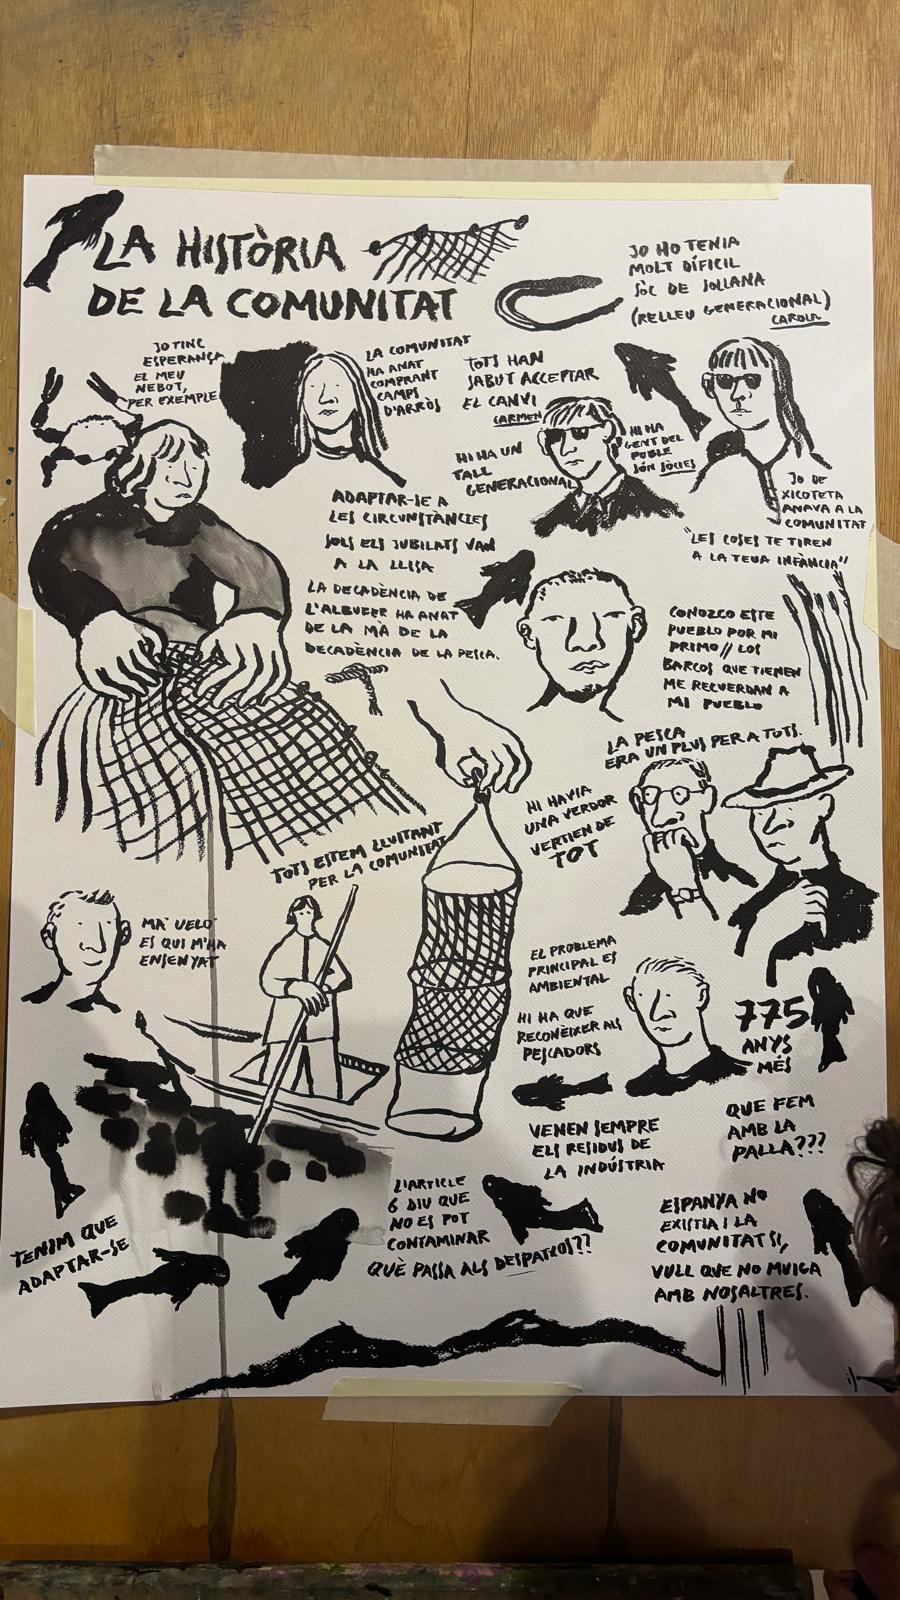 LA HISTÒRIA
DE LA COMUNITAT
JO HO TENIA
MOLT DÍFICIL
SÓC DE SOLLANA
(RELLEU GENERACIONAL)
CAROLA
JO TINC
ESPERANÇA
EL MEU
NEBOT,
PER EXEMPLE
LA COMUNITAT
HA ANAT
COMPRANT
CAMPS
D'ARRÒS
TOTS HAN
SABUT ACCEPTAR
EL CANVI
CARMEN
HI HA UN
TALL
GENERACIONAL
HI HA
GENT DEL
POBLE
SÓN SÒCIES
JO DE
XICOTETA
ANAVA A LA
COMUNITAT
"LES COSES TE TIREN
A LA TEUA INFÀNCIA"
ADAPTAR-SE A
LES CIRCUNSTÀNCIES
SOLS ELS JUBILATS VAN
A LA LLISA
LA DECADÈNCIA DE
L'ALBUFER HA ANAT
DE LA MÀ DE LA
DECADÈNCIA DE LA PESCA.
CONOZCO ESTE
PUEBLO POR MI
PRIMO // LOS
BARCOS QUE TIENEN
ME RECUERDAN A
MI PUEBLO
LA PESCA
ERA UN PLUS PER A TOTS.
HI HAVIA
UNA VERDOR
VERTIEN DE
TOT
TOTS ESTEM LLUITANT
PER LA COMUNITAT
MA UELO
ES QUI M'HA
ENSENYAT
EL PROBLEMA
PRINCIPAL ES
AMBIENTAL
HI HA QUE
RECONÈIXER ALS
PESCADORS
775
ANYS
MÉS
VENEN SEMPRE
ELS RESIDUS DE
LA INDÚSTRIA
QUE FEM
AMB LA
PALLA???
L'ARTICLE
6 DIU QUE
NO ES POT
CONTAMINAR
QUÈ PASSA ALS DESPATXOS??
ESPANYA NO
EXISTIA I LA
COMUNITAT SI,
VULL QUE NO MUIGA
AMB NOSALTRES.
TENIM QUE
ADAPTAR-SE